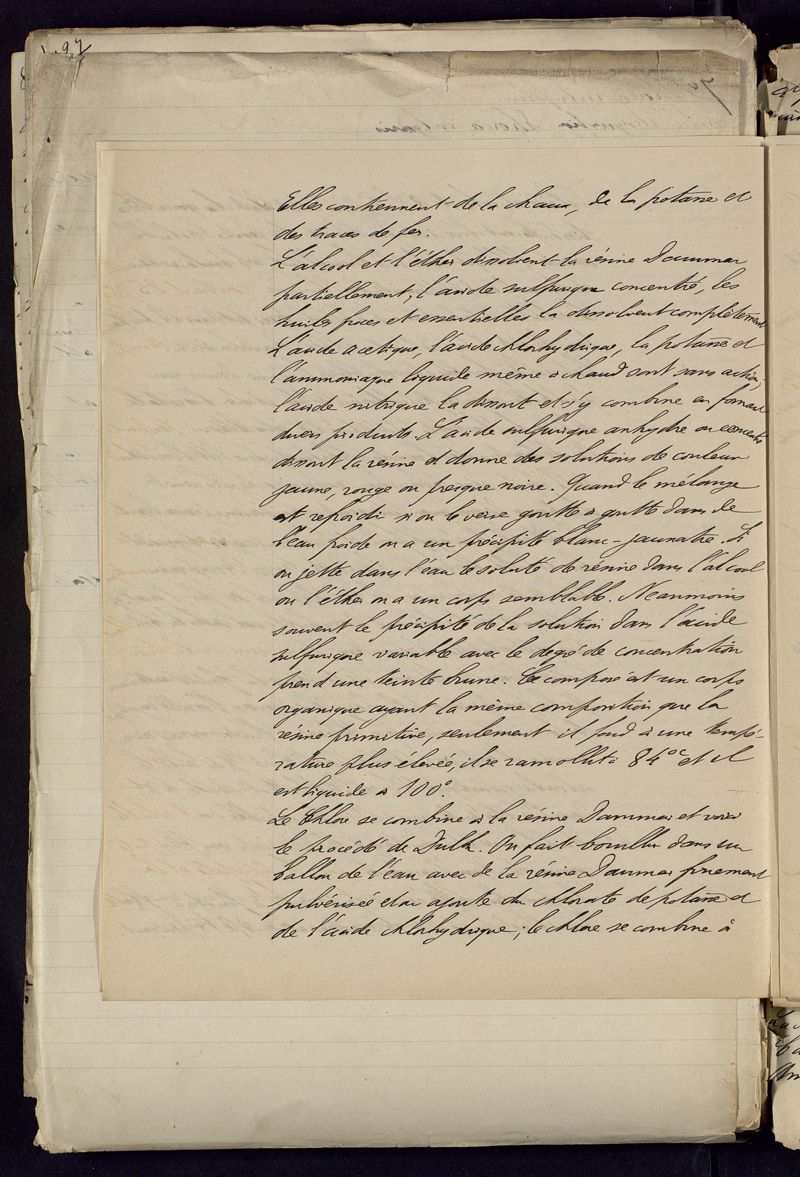 97
Elles contiennent de la chaux, de la potasse et
des traces de fer.
L'alcool et l'éther dissolvent la résine Dammar
partiellement, l'acide sulfurique concentré, les
huiles fixes et essentielles la dissolvent complètement
L'acide acétique, l'acide chlorhydrique, la potasse et
l'ammoniaque liquide même à chaud sont sans action,
l'acide nitrique la dissout et s'y combine en formant
divers produits. L'acide sulfurique anhydre ou concentré
dissout la résine et donne des solutions de couleur
jaune, rouge ou presque noire. Quand le mélange
est refroidi si on le verse goutte à goutte dans de
l'eau froide on a un précipité blanc-jaunatre. Si
on jette dans l'eau le soluté de résine dans l'alcool
ou l'éther on a un corps semblable. Néanmoins
souvent le précipité de la solution dans l'acide
sulfurique variable avec le degré de concentration
prend une teinte brune. Ce composé est un corps
organique ayant la même composition que la
résine primitive, seulement il fond à une tempé-
rature plus élevée, il se ramollit à 84° et il
est liquide à 100°.
Le Chlore se combine à la résine Dammar et voici
le procédé de Dulk. On fait bouillir dans un
ballon de l'eau avec de la résine Dammar finement
pulvérisée et on ajoute du chlorate de potasse et
de l'acide chlorhydrique; le chlore se combine à